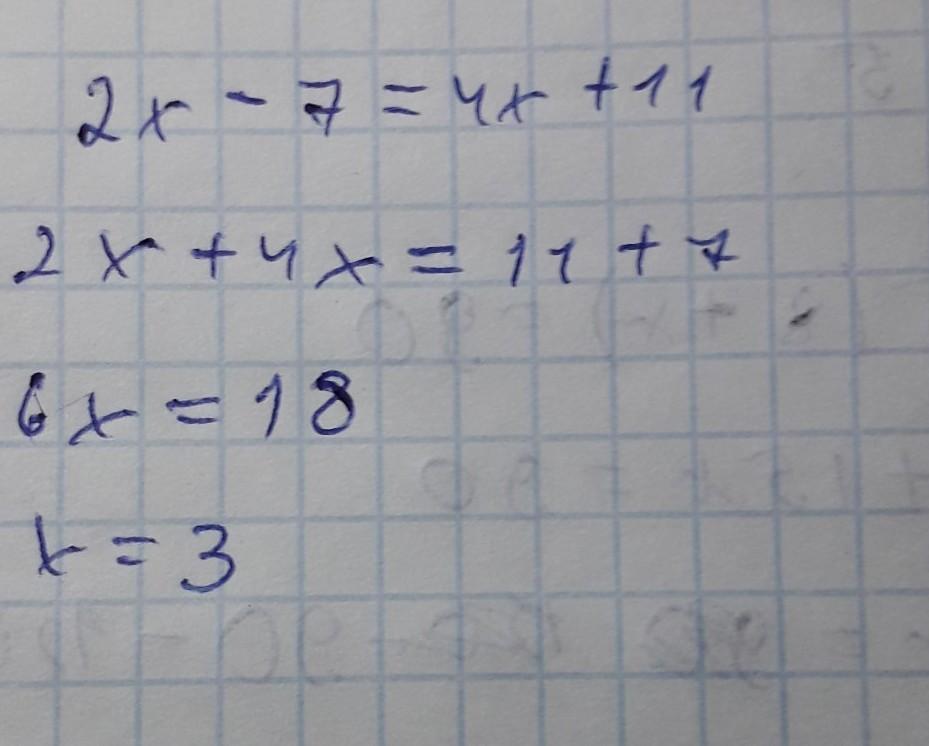 2x - 7 = 4x + 11
2x + 4x = 11 + 7
6x = 18
x = 3